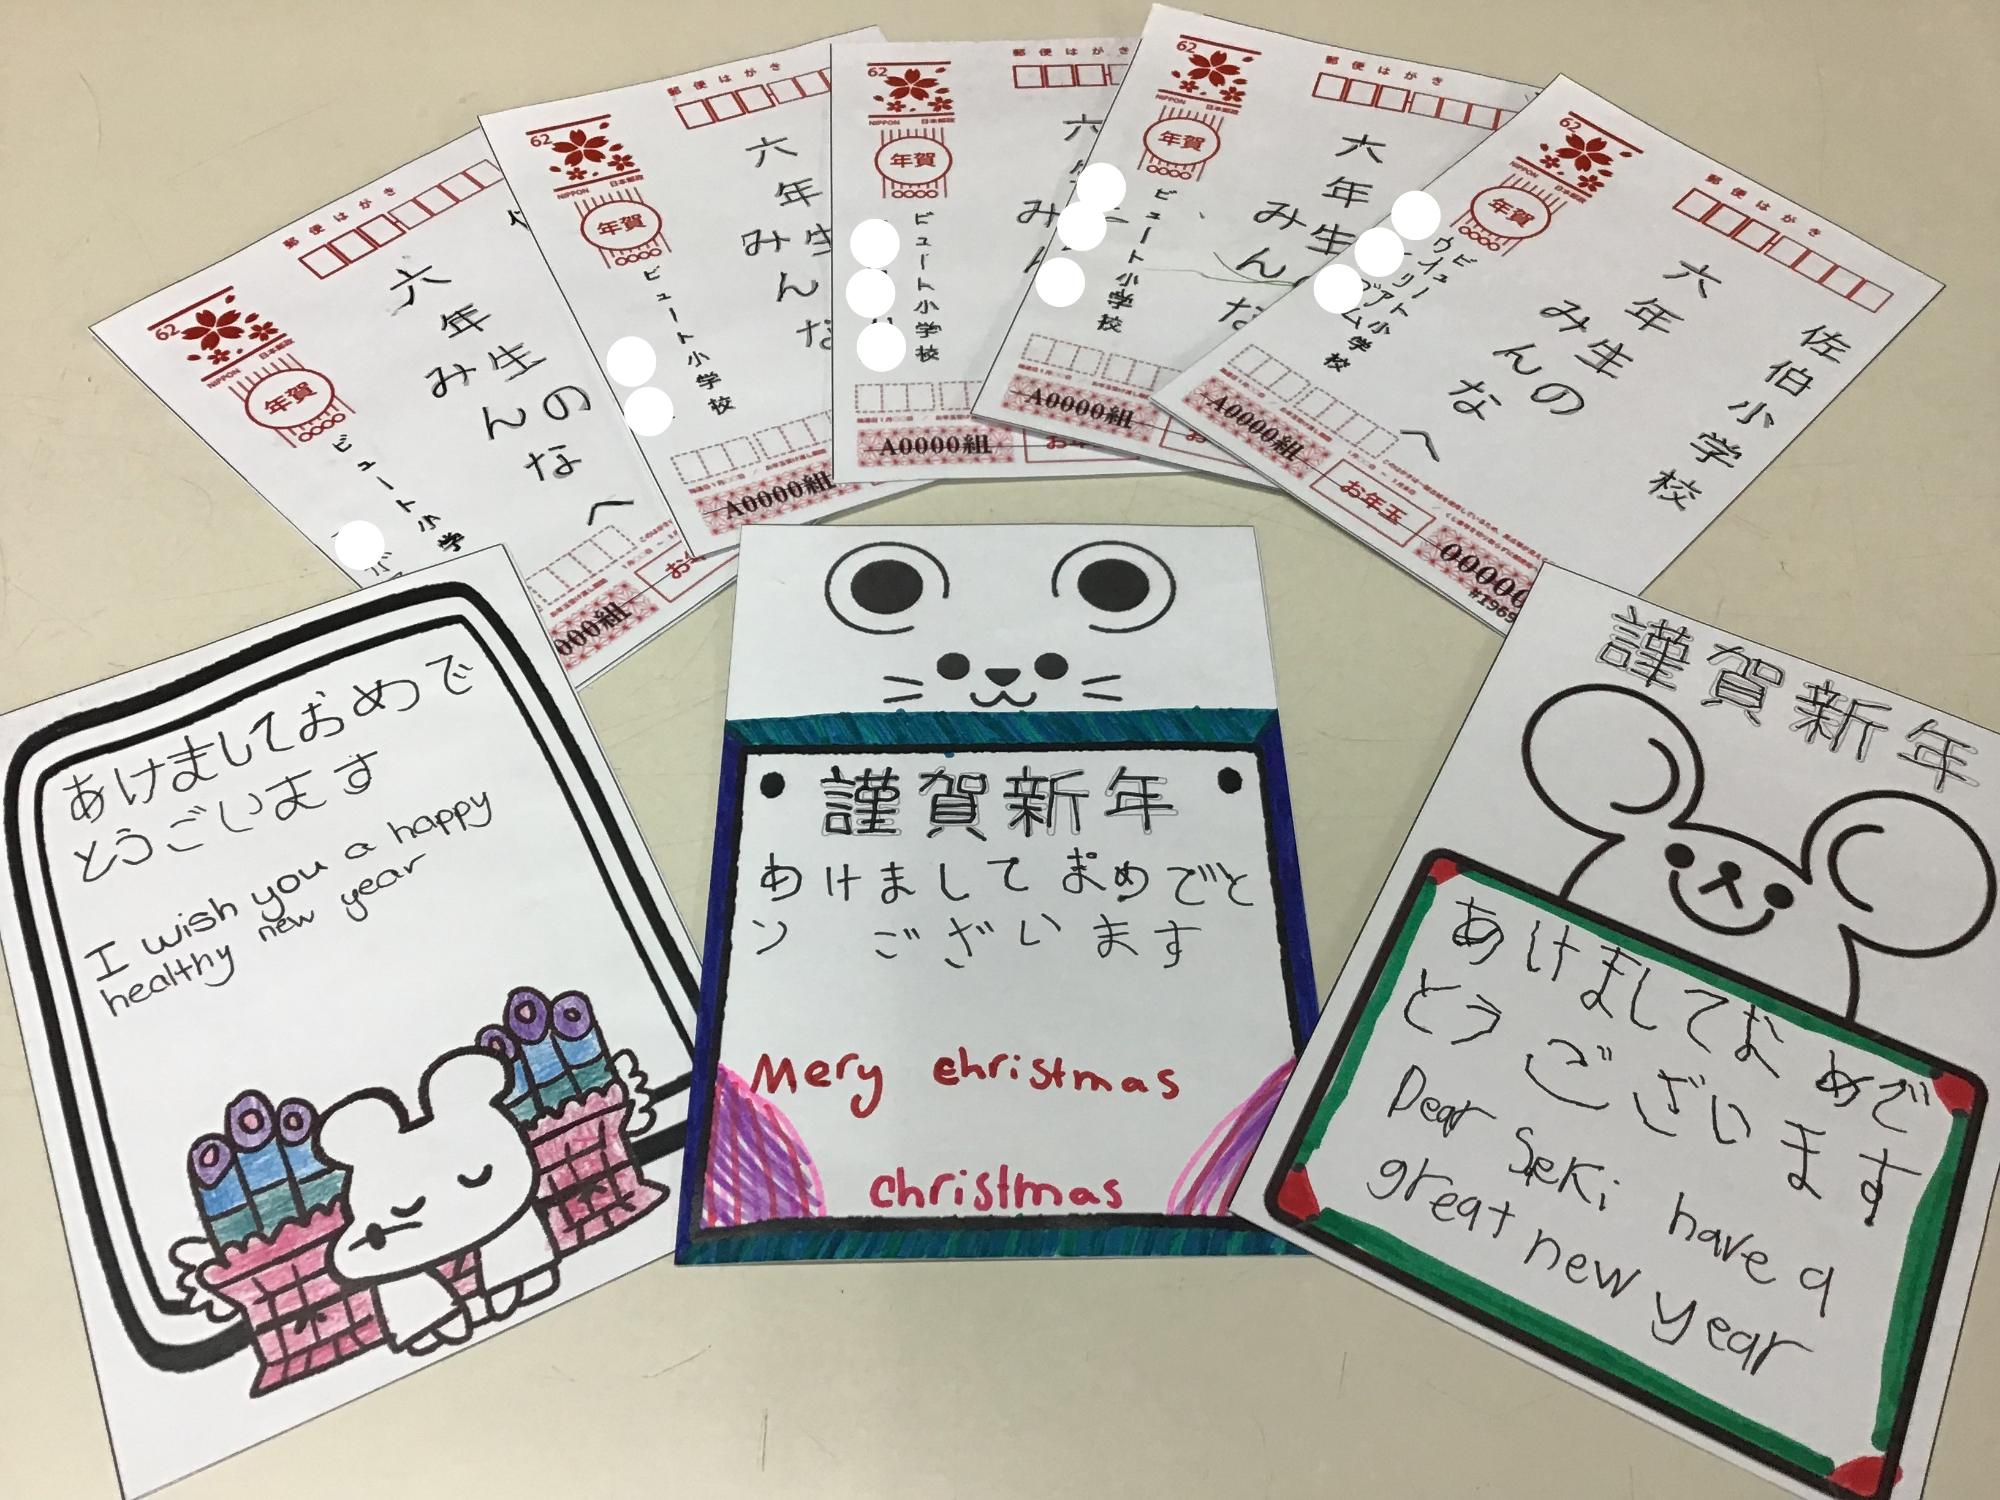 62
NIPPON 日本郵政
郵便はがき
年賀
六年生の
みんなへ
ビュート小学
000組
62
NIPPON 日本郵政
郵便はがき
年賀
六年生
みんな
ビュート小学校
A0000組
62
NIPPON 日本郵政
郵便はがき
年賀
六
み
ビュート小学校
A0000組
62
NIPPON 日本郵政
郵便はがき
年賀
六年生
みんな
ビュート小学校
A0000組
62
NIPPON 日本郵政
郵便はがき
年賀
佐伯小学校
六年生の
みんなへ
ビュート小学校
A0000組
お年玉
00000
あけましておめで
とうございます
I wish you a happy
healthy new year
謹賀新年
あけましておめでと
ございます
Mery christmas
christmas
謹賀新年
あけましておめで
とうございます
Dear Seki have a
great new year